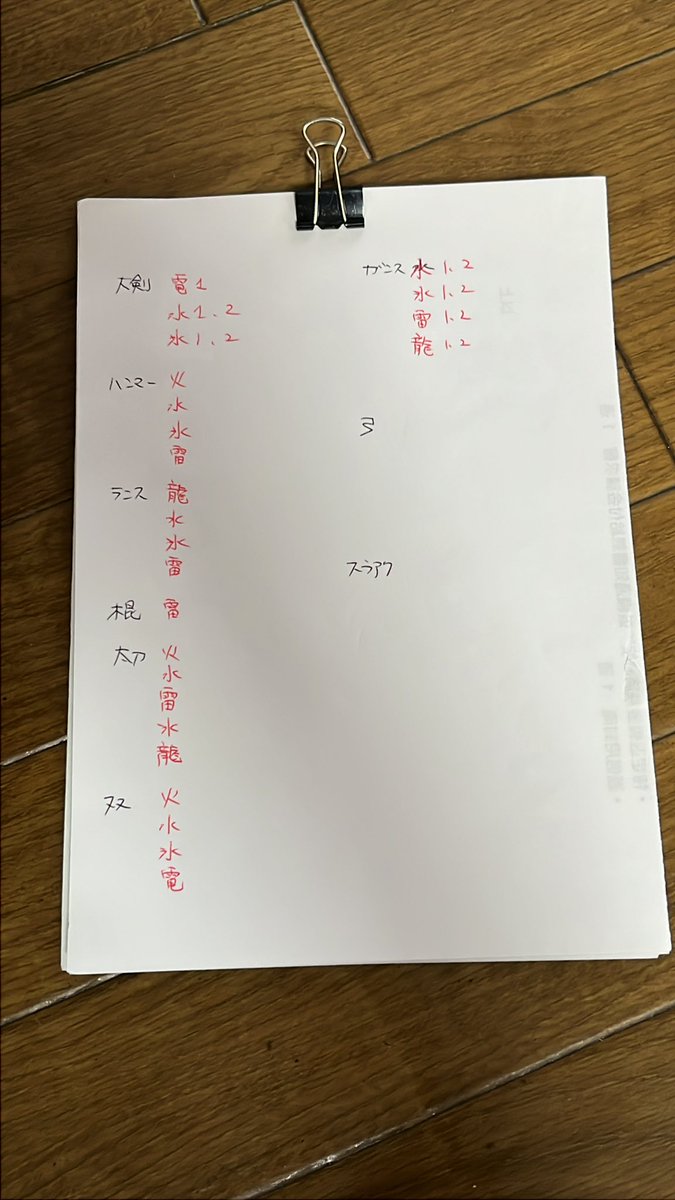 大剣 電1
水1.2
氷1.2
ハンマー 火
水
氷
雷
ランス 龍
水
氷
雷
棍 雷
太刀 火
水
雷
氷
龍
双 火
水
氷
電
ガンス 水1.2
氷1.2
雷1.2
龍1.2
弓
スラアク